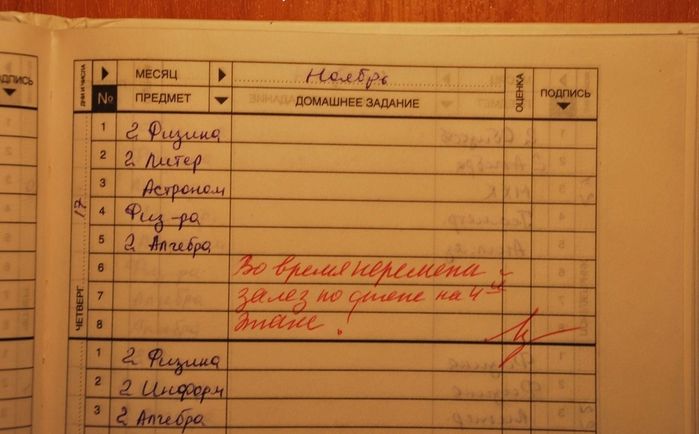 ПОДПИСЬ
ДНИ И ЧИСЛА МЕСЯЦ Ноябрь ОЦЕНКА ПОДПИСЬ
№ ПРЕДМЕТ ДОМАШНЕЕ ЗАДАНИЕ
ЧЕТВЕРГ 17
1 2 Физика
2 2 Литер
3 Астроном
4 Физ-ра
5 2 Алгебра
6 Во время перемены
7 залез по стене на 4й
8 этаж!
1 2 Физика
2 2 Информ
3 2 Алгебра